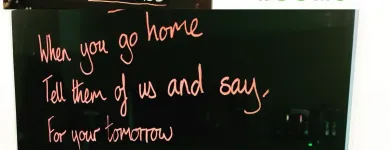 When you go home
Tell them of us and say,
For your tomorrow